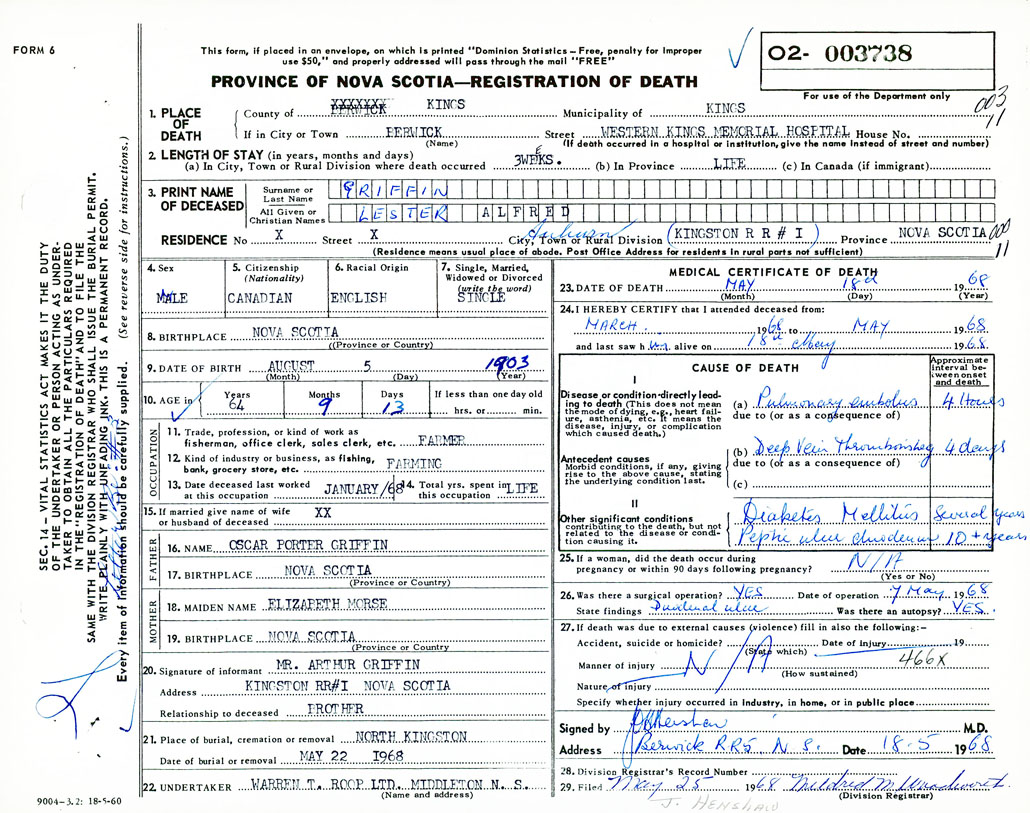 FORM 6
This form, if placed in an envelope, on which is printed "Dominion Statistics – Free, penalty for improper
use $50," and properly addressed will pass through the mail "FREE"
O2- 003738
For use of the Department only
PROVINCE OF NOVA SCOTIA—REGISTRATION OF DEATH
003
11
1. PLACE OF DEATH
County of XXXXXXX BERWICK KINGS Municipality of KINGS
If in City or Town BERWICK Street WESTERN KINGS MEMORIAL HOSPITAL House No.
(Name) (If death occurred in a hospital or institution, give the name instead of street and number)
2. LENGTH OF STAY (in years, months and days)
(a) In City, Town or Rural Division where death occurred 3WEKS. E (b) In Province LIFE (c) In Canada (if immigrant)
3. PRINT NAME OF DECEASED
Surname or Last Name GRIFFIN
All Given or Christian Names LESTER ALFRED
RESIDENCE No X Street X City, Town or Rural Division Auburn (KINGSTON R R # I) Province NOVA SCOTIA 000
11
(Residence means usual place of abode. Post Office Address for residents in rural parts not sufficient)
4. Sex
MALE
5. Citizenship
(Nationality)
CANADIAN
6. Racial Origin
ENGLISH
7. Single, Married,
Widowed or Divorced
(write the word)
SINGLE
8. BIRTHPLACE NOVA SCOTIA
((Province or Country)
9. DATE OF BIRTH AUGUST 5 1903
(Month) (Day) (Year)
10. AGE in Years Months Days If less than one day old
64 9 13 hrs. or min.
OCCUPATION
11. Trade, profession, or kind of work as
fisherman, office clerk, sales clerk, etc. FARMER
12. Kind of industry or business, as fishing,
bank, grocery store, etc. FARMING
13. Date deceased last worked
at this occupation JANUARY/68
14. Total yrs. spent in
this occupation LIFE
15. If married give name of wife
or husband of deceased XX
FATHER
16. NAME OSCAR PORTER GRIFFIN
17. BIRTHPLACE NOVA SCOTIA
(Province or Country)
MOTHER
18. MAIDEN NAME ELIZABETH MORSE
19. BIRTHPLACE NOVA SCOTIA
(Province or Country)
20. Signature of informant MR. ARTHUR GRIFFIN
Address KINGSTON RR#I NOVA SCOTIA
Relationship to deceased BROTHER
21. Place of burial, cremation or removal NORTH KINGSTON
Date of burial or removal MAY 22 1968
22. UNDERTAKER WARREN T. ROOP LTD. MIDDLETON N. S.
(Name and address)
MEDICAL CERTIFICATE OF DEATH
23. DATE OF DEATH MAY 18th 1968
(Month) (Day) (Year)
24. I HEREBY CERTIFY that I attended deceased from:
MARCH 1968 to MAY 1968
and last saw him alive on 18th May 1968
CAUSE OF DEATH
Approximate
interval be-
tween onset
and death
I
Disease or condition directly lead-
ing to death (This does not mean
the mode of dying, e.g., heart fail-
ure, asthenia, etc. It means the
disease, injury, or complication
which caused death.)
(a) Pulmonary embolus 4 Hours
due to (or as a consequence of)
Antecedent causes
Morbid conditions, if any, giving
rise to the above cause, stating
the underlying condition last.
(b) Deep Vein Thrombosis leg 4 days
due to (or as a consequence of)
(c)
II
Other significant conditions
contributing to the death, but not
related to the disease or condi-
tion causing it.
Diabetes Mellitus Several years
Peptic ulcer duodenum 10 + years
25. If a woman, did the death occur during
pregnancy or within 90 days following pregnancy? N/A
(Yes or No)
26. Was there a surgical operation? YES Date of operation 7 May 1968
State findings Duodenal ulcer Was there an autopsy? YES.
27. If death was due to external causes (violence) fill in also the following:–
Accident, suicide or homicide? Date of injury 19
(State which)
N/A
466X
Manner of injury
(How sustained)
Nature of injury
Specify whether injury occurred in industry, in home, or in public place
Signed by M.D.
Address Berwick RR5 N S. Date 18-5 1968
28. Division Registrar's Record Number
29. Filed May 25 1968 Mildred M. Woodworth
(Division Registrar)
J. HENSHAW
SEC. 14 – VITAL STATISTICS ACT MAKES IT THE DUTY
OF THE UNDERTAKER OR PERSON ACTING AS UNDER-
TAKER TO OBTAIN ALL THE PARTICULARS REQUIRED
IN THE "REGISTRATION OF DEATH" AND TO FILE THE
SAME WITH THE DIVISION REGISTRAR WHO SHALL ISSUE THE BURIAL PERMIT.
WRITE PLAINLY WITH UNFADING INK. THIS IS A PERMANENT RECORD.
Every item of information should be carefully supplied. (See reverse side for instructions.)
9004-3.2: 18-5-60